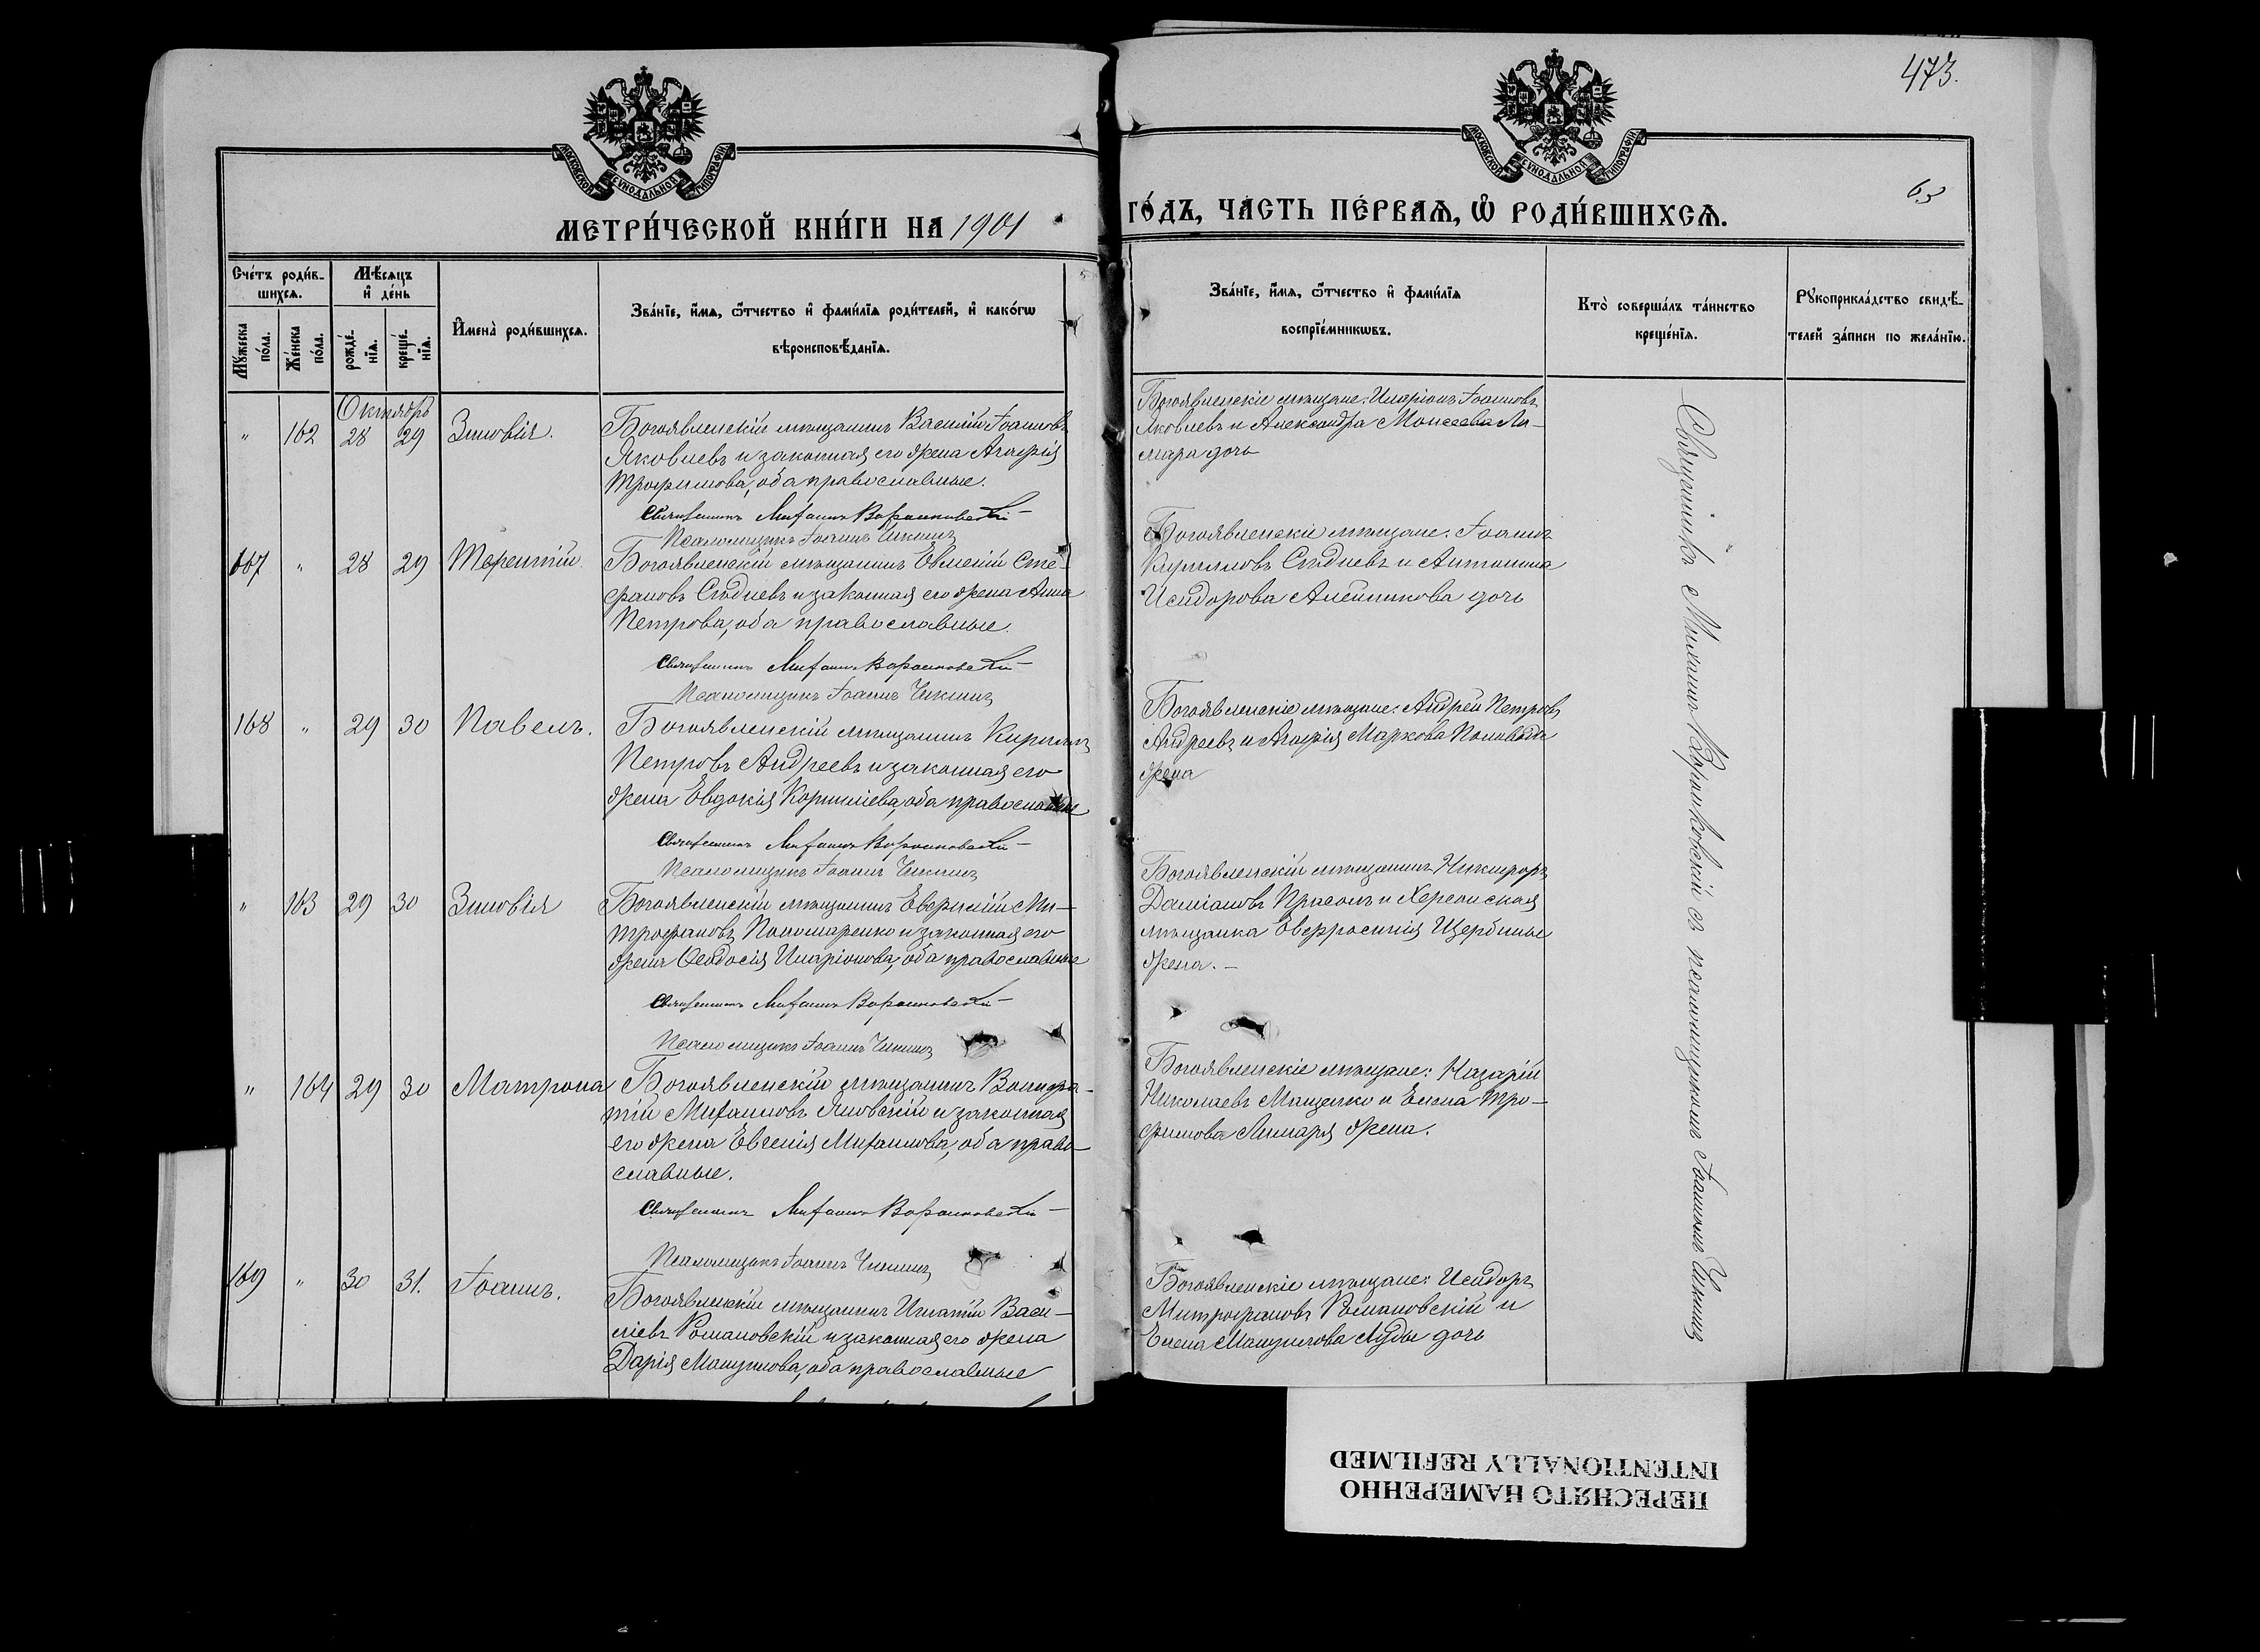 473.
63
МОСКОВСКОЙ СѴНОДАЛЬНОЙ ТИПОГРАФІИ
МОСКОВСКОЙ СѴНОДАЛЬНОЙ ТИПОГРАФІИ
МЕТРИ́ЧЕСКОЙ КНИ́ГИ НА 1901
ГО́ДЪ, ЧА́СТЬ ПЕ́РВАѦ, Ѽ РОДИ́ВШИХСѦ.
Сче́тъ роди́в-
шихсѧ.
Мѣ́сѧцъ
и҆ де́нь
Мꙋ́жеска
по́ла.
Же́нска
по́ла.
рожде́-
нїѧ.
креще́-
нїѧ.
И҆мена̀ роди́вшихсѧ.
Зва́нїе, и҆́мѧ, ѻ҆́тчество и҆ фами́лїѧ роди́телей, и҆ како́гѡ
вѣроисповѣ́данїѧ.
Зва́нїе, и҆́мѧ, ѻ҆́тчество и҆ фами́лїѧ
воспрїе́мникѡвъ.
Кто̀ соверша́лъ та́инство
креще́нїѧ.
Рꙋкоприкла́дство свидѣ́-
телей за́писи по жела́нїю.
Октябрь
" 162 28 29 Зиновія.
Богоявленскій мѣщанинъ Василій Іоанновъ
Яковлевъ и законная его жена Агафія
Трофимова, оба православные.
Священникъ Михаилъ Воронковскій
Псаломщикъ Іоаннъ Чикинъ
Богоявленскіе мѣщане: Иларіонъ Іоанновъ
Яковлевъ и Александра Моисеева Ли-
маря дочь
167 " 28 29 Терентій.
Богоявленскій мѣщанинъ Евменій Сте-
фановъ Слѣдневъ и законная его жена Анна
Петрова, оба православные.
Священникъ Михаилъ Воронковскій
Псаломщикъ Іоаннъ Чикинъ
Богоявленскіе мѣщане: Іоаннъ
Кирилловъ Слѣдневъ и Антонина
Исидорова Алейникова дочь
168 " 29 30 Павелъ.
Богоявленскій мѣщанинъ Кириллъ
Петровъ Андреевъ и законная его
жена Евдокія Корнилiева, оба православные
Священникъ Михаилъ Воронковскій
Псаломщикъ Іоаннъ Чикинъ
Богоявленскіе мѣщане: Андрей Петровъ
Андреевъ и Агафія Маркова
жена
" 163 29 30 Зиновія
Богоявленскій мѣщанинъ Евфимій Ми-
трофановъ Пономаренко и законная его
жена Ѳеодосія Иларіонова, оба православные
Священникъ Михаилъ Воронковскій
Псаломщикъ Іоаннъ Чикинъ
Богоявленскій мѣщанинъ Никифоръ
Даміановъ Прасолъ и Херсонская
мѣщанка Евфросинія Щербины
жена.-
" 164 29 30 Матрона
Богоявленскій мѣщанинъ Вонифа-
тій Михаиловъ Яновскій и законная
его жена Евгенія Михаилова, оба право-
славные.
Священникъ Михаилъ Воронковскій
Псаломщикъ Іоаннъ Чикинъ
Богоявленскіе мѣщане: Назарій
Николаевъ Мащенко и Елена Тро-
фимова Лимаря жена.
169 " 30 31. Іоаннъ.
Богоявленскій мѣщанинъ Игнатій Васи-
ліевъ Романовскій и законная его жена
Дарія Мануилова, оба православные
Богоявленскіе мѣщане: Исидоръ
Митрофановъ Романовскій и
Елена Мануилова Луды дочь
Священникъ Михаилъ Воронковскій съ псаломщикомъ Іоанномъ Чикинъ
ПЕРЕСНЯТО НАМЕРЕННО
INTENTIONALLY REFILMED